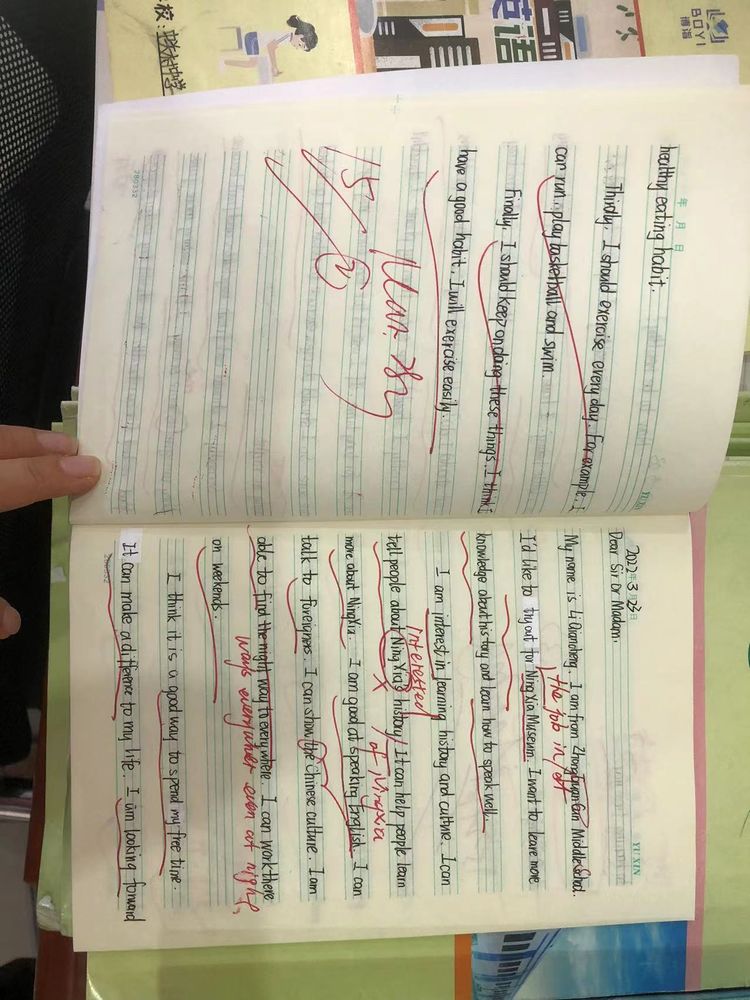 healthy eating habit.
年 月 日
Thirdly, I should exercise every day. For example, I
can run, play basketball and swim.
Finally, I should keep on doing these things. I think I
have a good habit. I will exercise easily.
15
780332
2022年3月23日
YU XIN
Dear Sir or Madam,
My name is I am from Middle School.
the job in/of
I'd like to try out for NingXia Museum. I want to leare more
knowledge about history and learn how to speak well.
I am interest in learning history and culture. I can
interested
tell people about NingXia's history. It can help people learn
of Ningxia
more about NingXia. I am good at speaking English. I can
talk to foreigners. I can show the Chinese culture. I am
able to find the might way to everywhere. I can work there
ways everywhere even at night,
on weekends.
I think it is a good way to spend my free time.
It can make a difference to my life. I am looking forward
校:
英语
BOYI
博谊